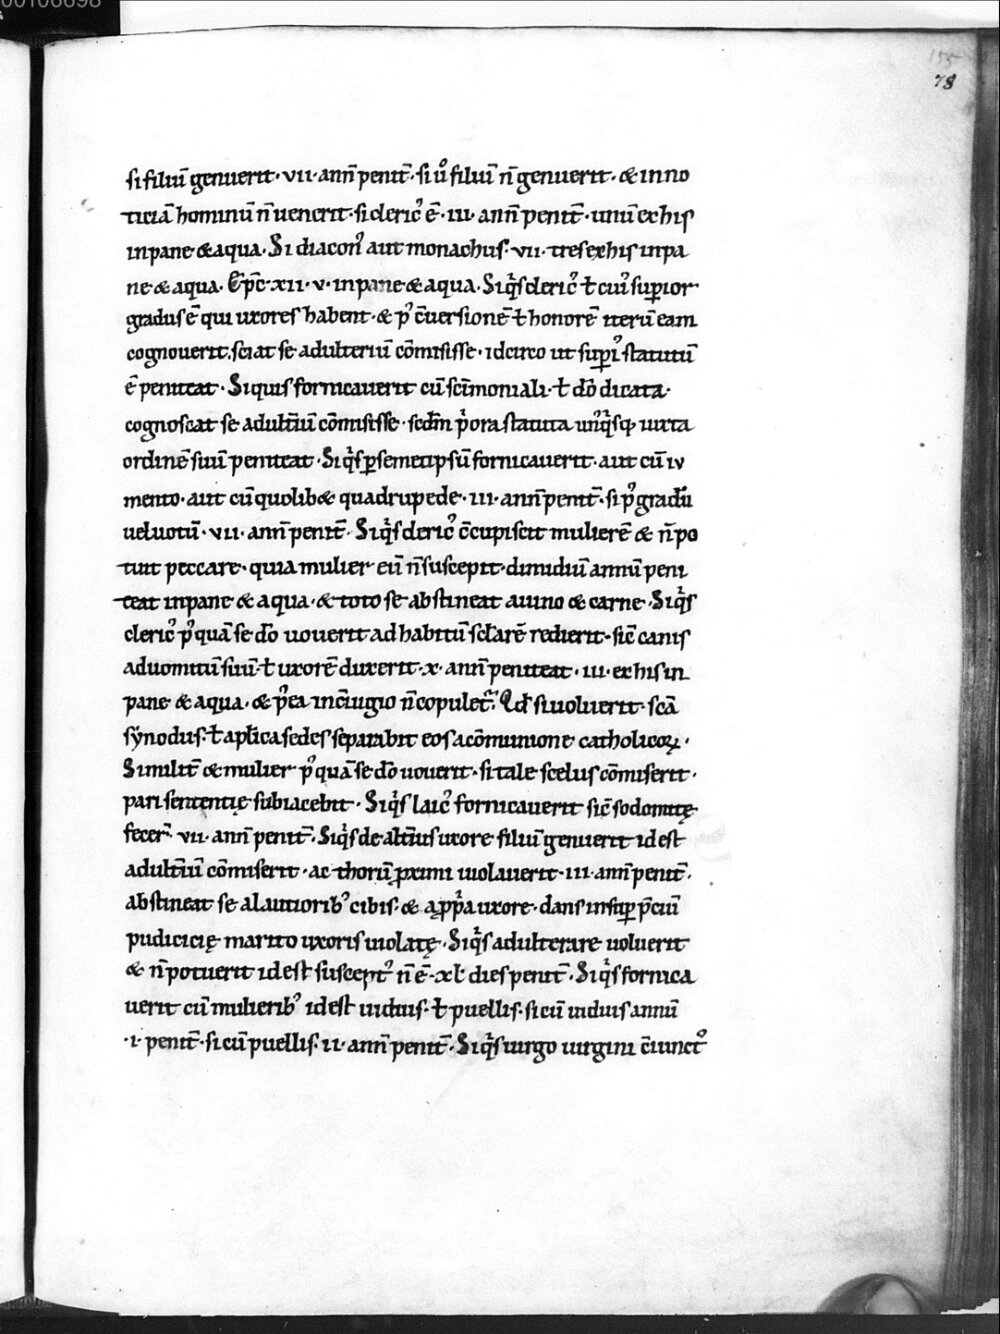 00106698
155
78
si filiū genuerit · vii · ann̄ penit̄ · si ů filiū n̄ genuerit · & in no
ticiā hominū n̄ uenerit · si cleric᾽ ē · iii · ann̄ penit̄ · unū ex his
in pane & aqua · Si diacon᾽ aut monachus · vii · tres ex his in pa
ne & aqua · Ep̄c · xii · v · in pane & aqua · Siq̇s cleric᾽ ł cui᾽ superior
gradus ē qui uxores habent · & p᾽ c̄uersionē ł honorē iterū eam
cognouerit · sciat se adulteriū cōmisisse · idcirco ut sup̲i᾽ statutū
ē peniteat · Siquis fornicauerit cū sc̄imoniali · ł dō dicata ·
cognoscat se adult̄iū cōmisisse · scdm̄ p̍ora statuta unq̇sq; iuxta
ordinē suū peniteat · Siq̇s p̲ semetipsū fornicauerit · aut cū iu
mento · aut cū quolib& quadrupede · iii · ann̄ penit̄ · si p᾽ gradū
uel uotū · vii · ann̄ penit̄ · Siq̇s cleric᾽ c̄cupiscit mulierē & n̄ po
tuit peccare · quia mulier eū n̄ suscepit · dimidiū annū peni
teat in pane & aqua · & toto se abstineat a uino & carne · Siq̇s
cleric᾽ p᾽quā se dō uouerit ad habitū sc̄larē redierit · sic̄ canis
ad uomitū suū · ł uxorē duxerit · x · ann̄ peniteat · iii · ex his in
pane & aqua · & p᾽ea in c̄iugio n̄ copulet᾽ · Qd̄ si uoluerit · sc̄a
synodus · ł ap̄lica sedes separabit eos a cōmunione catholicoꝝ ·
Similit̄ & mulier p᾽quā se dō uouerit · si tale scelus cōmiserit ·
pari sententię subiacebit · Siq̇s laic᾽ fornicauerit sic̄ sodomitę
fecer̄ · vii · ann̄ penit̄ · Siq̇s de alt̄ius uxore filiū genuerit id est
adult̄iū cōmiserit · ac thorū ꝓximi uiolauerit · iii · ann̄ penit̄ ·
abstineat se a lautiorib᾽ cibis · & a ꝓp̍a uxore · dans insup̲ p̄ciū
pudicicię marito uxoris uiolatę · Siq̇s adulterare uoluerit
& n̄ potuerit id est suscept᾽ n̄ ē · xl · dies penit̄ · Siq̇s fornica
uerit cū mulierib᾽ id est uiduis · ł puellis · si cū uiduis annū
· i · penit̄ · si cū puellis · ii · ann̄ penit̄ · Siq̇s uirgo uirgini c̄iunct᾽